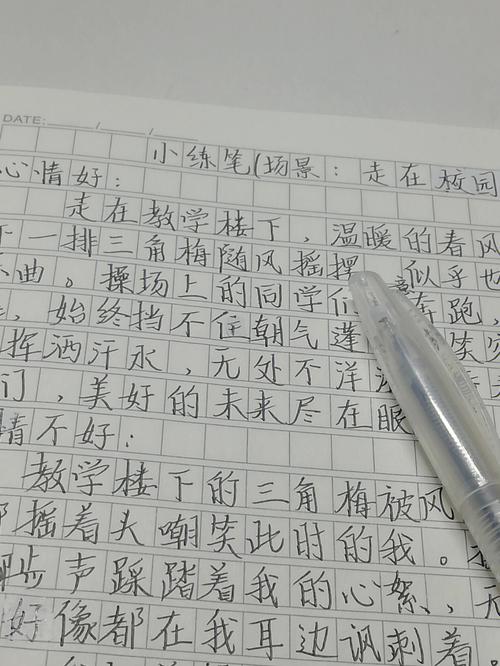 DATE: / /
小练笔(场景:走在校园
心情好:
走在教学楼下,温暖的春风
一排三角梅随风摇摆 似乎也
曲。操场上的同学们 奔跑,
,始终挡不住朝气蓬 笑
挥洒汗水,无处不洋
们,美好的未来尽在眼
情不好:
教学楼下的三角梅被风
摇着头嘲笑此时的我。
步声踩踏着我的心絮,无
好像都在我耳边讽刺着